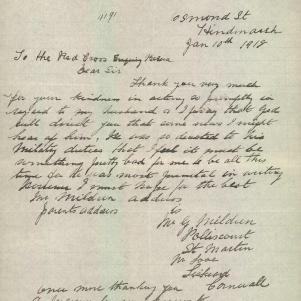 4191
Osmond St
Hindmarsh
Jan 10th 1918
To the Red Cross Enquiry
Dear Sir
Thank you very much
for your kindness in acting so promptly in
regard to my husband & I pray that God
will direct you that some news I might
hear of him. He was so devoted to his
Military duties that I feel it must be
something pretty bad for me to be all this
time for he was most punctual in writing
I must hope for the best
Mr Mildren address
parents address is
Mr G Mildren
St Martin
Cornwall
once more thanking you